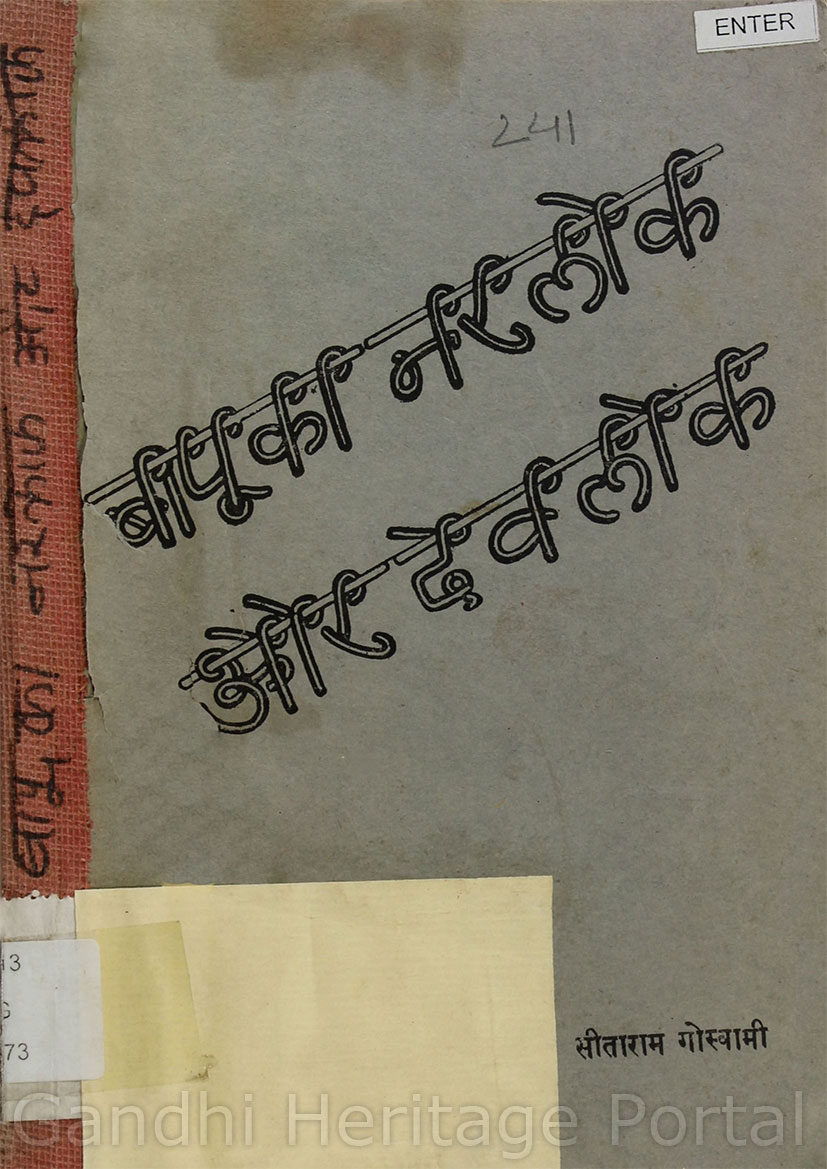 ENTER
241
बापू का नरलोक
और देवलोक
बापू का नरलोक और देवलोक
सीताराम गोस्वामी
13
G
73
Gandhi Heritage Portal